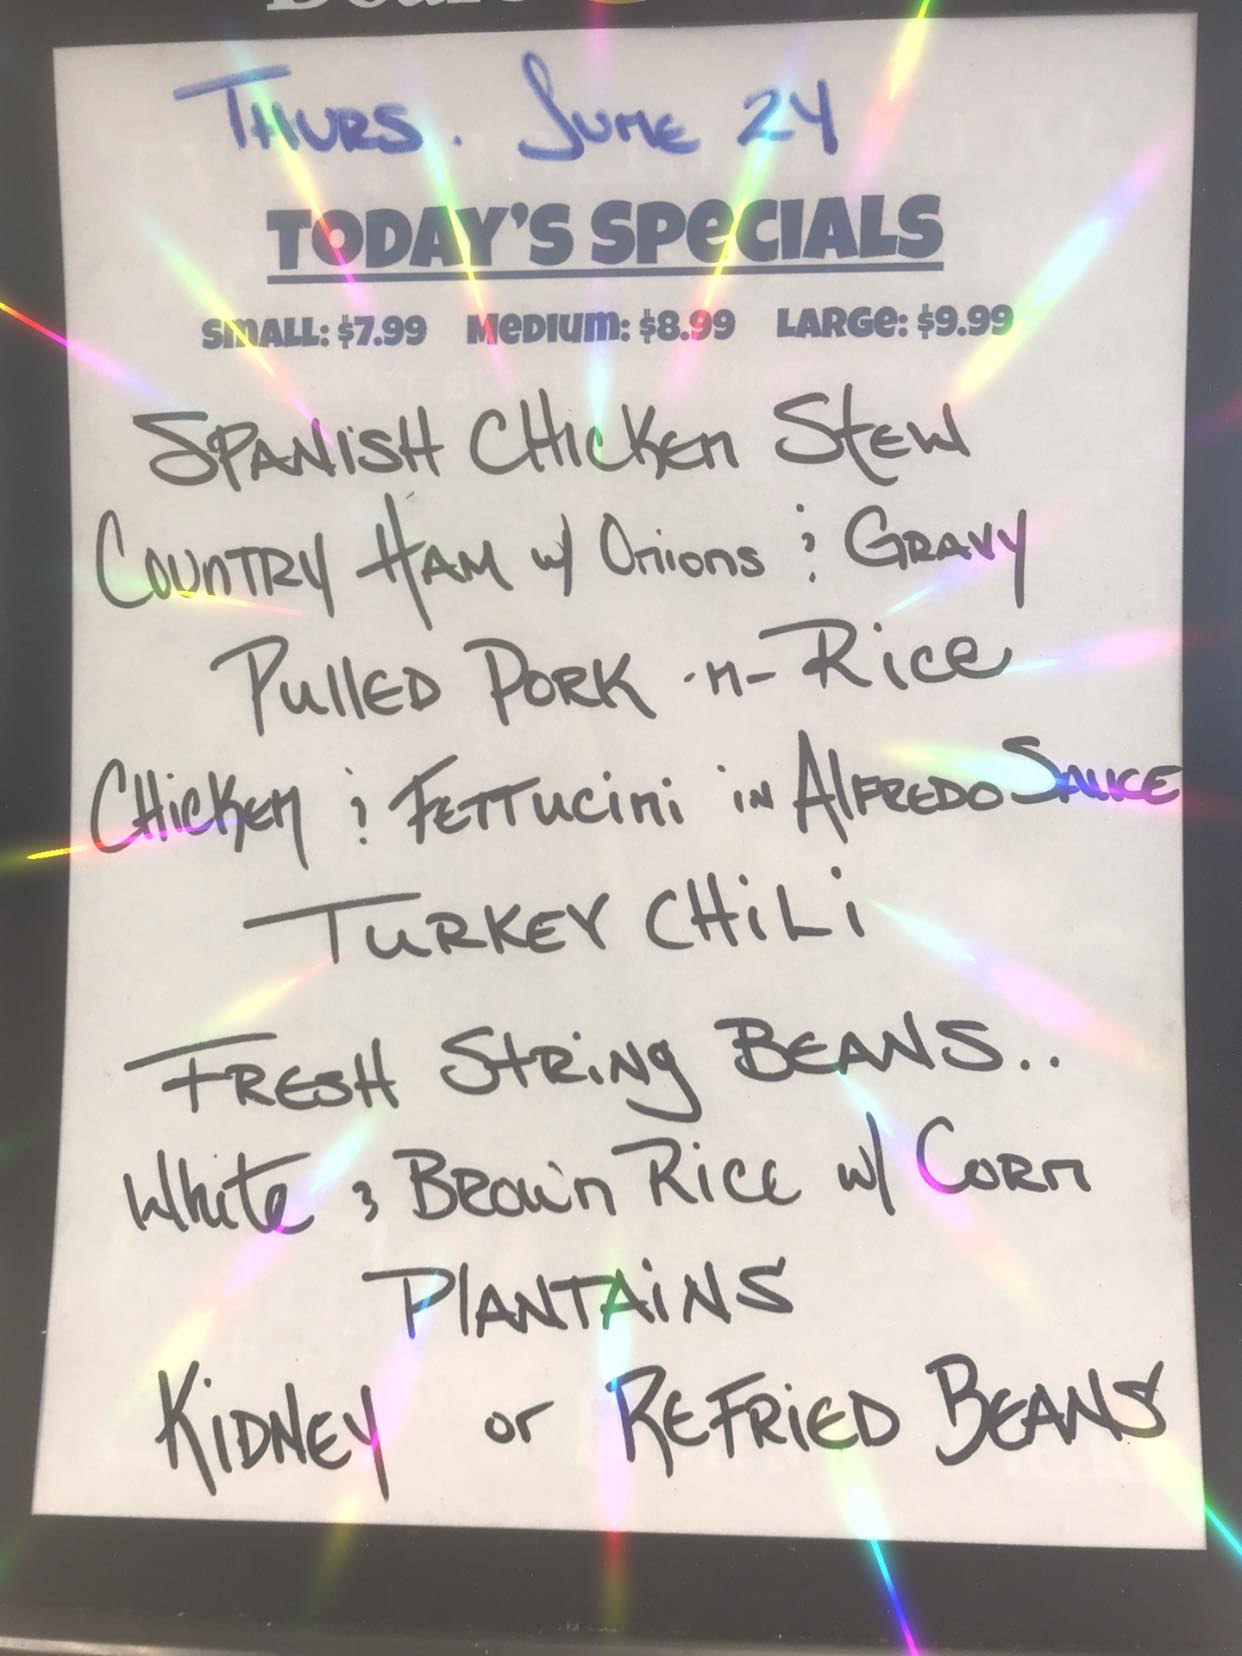 THURS. JUNE 24
TODAY'S SPECIALS
SMALL: $7.99 MEDIUM: $8.99 LARGE: $9.99
SPANISH CHICKEN STEW
COUNTRY HAM w/ ONIONS & GRAVY
PULLED PORK -N- RICE
CHICKEN & FETTUCINI IN ALFREDO SAUCE
TURKEY CHILI
FRESH STRING BEANS..
WHITE & BROWN RICE w/ CORN
PLANTAINS
KIDNEY or REFRIED BEANS